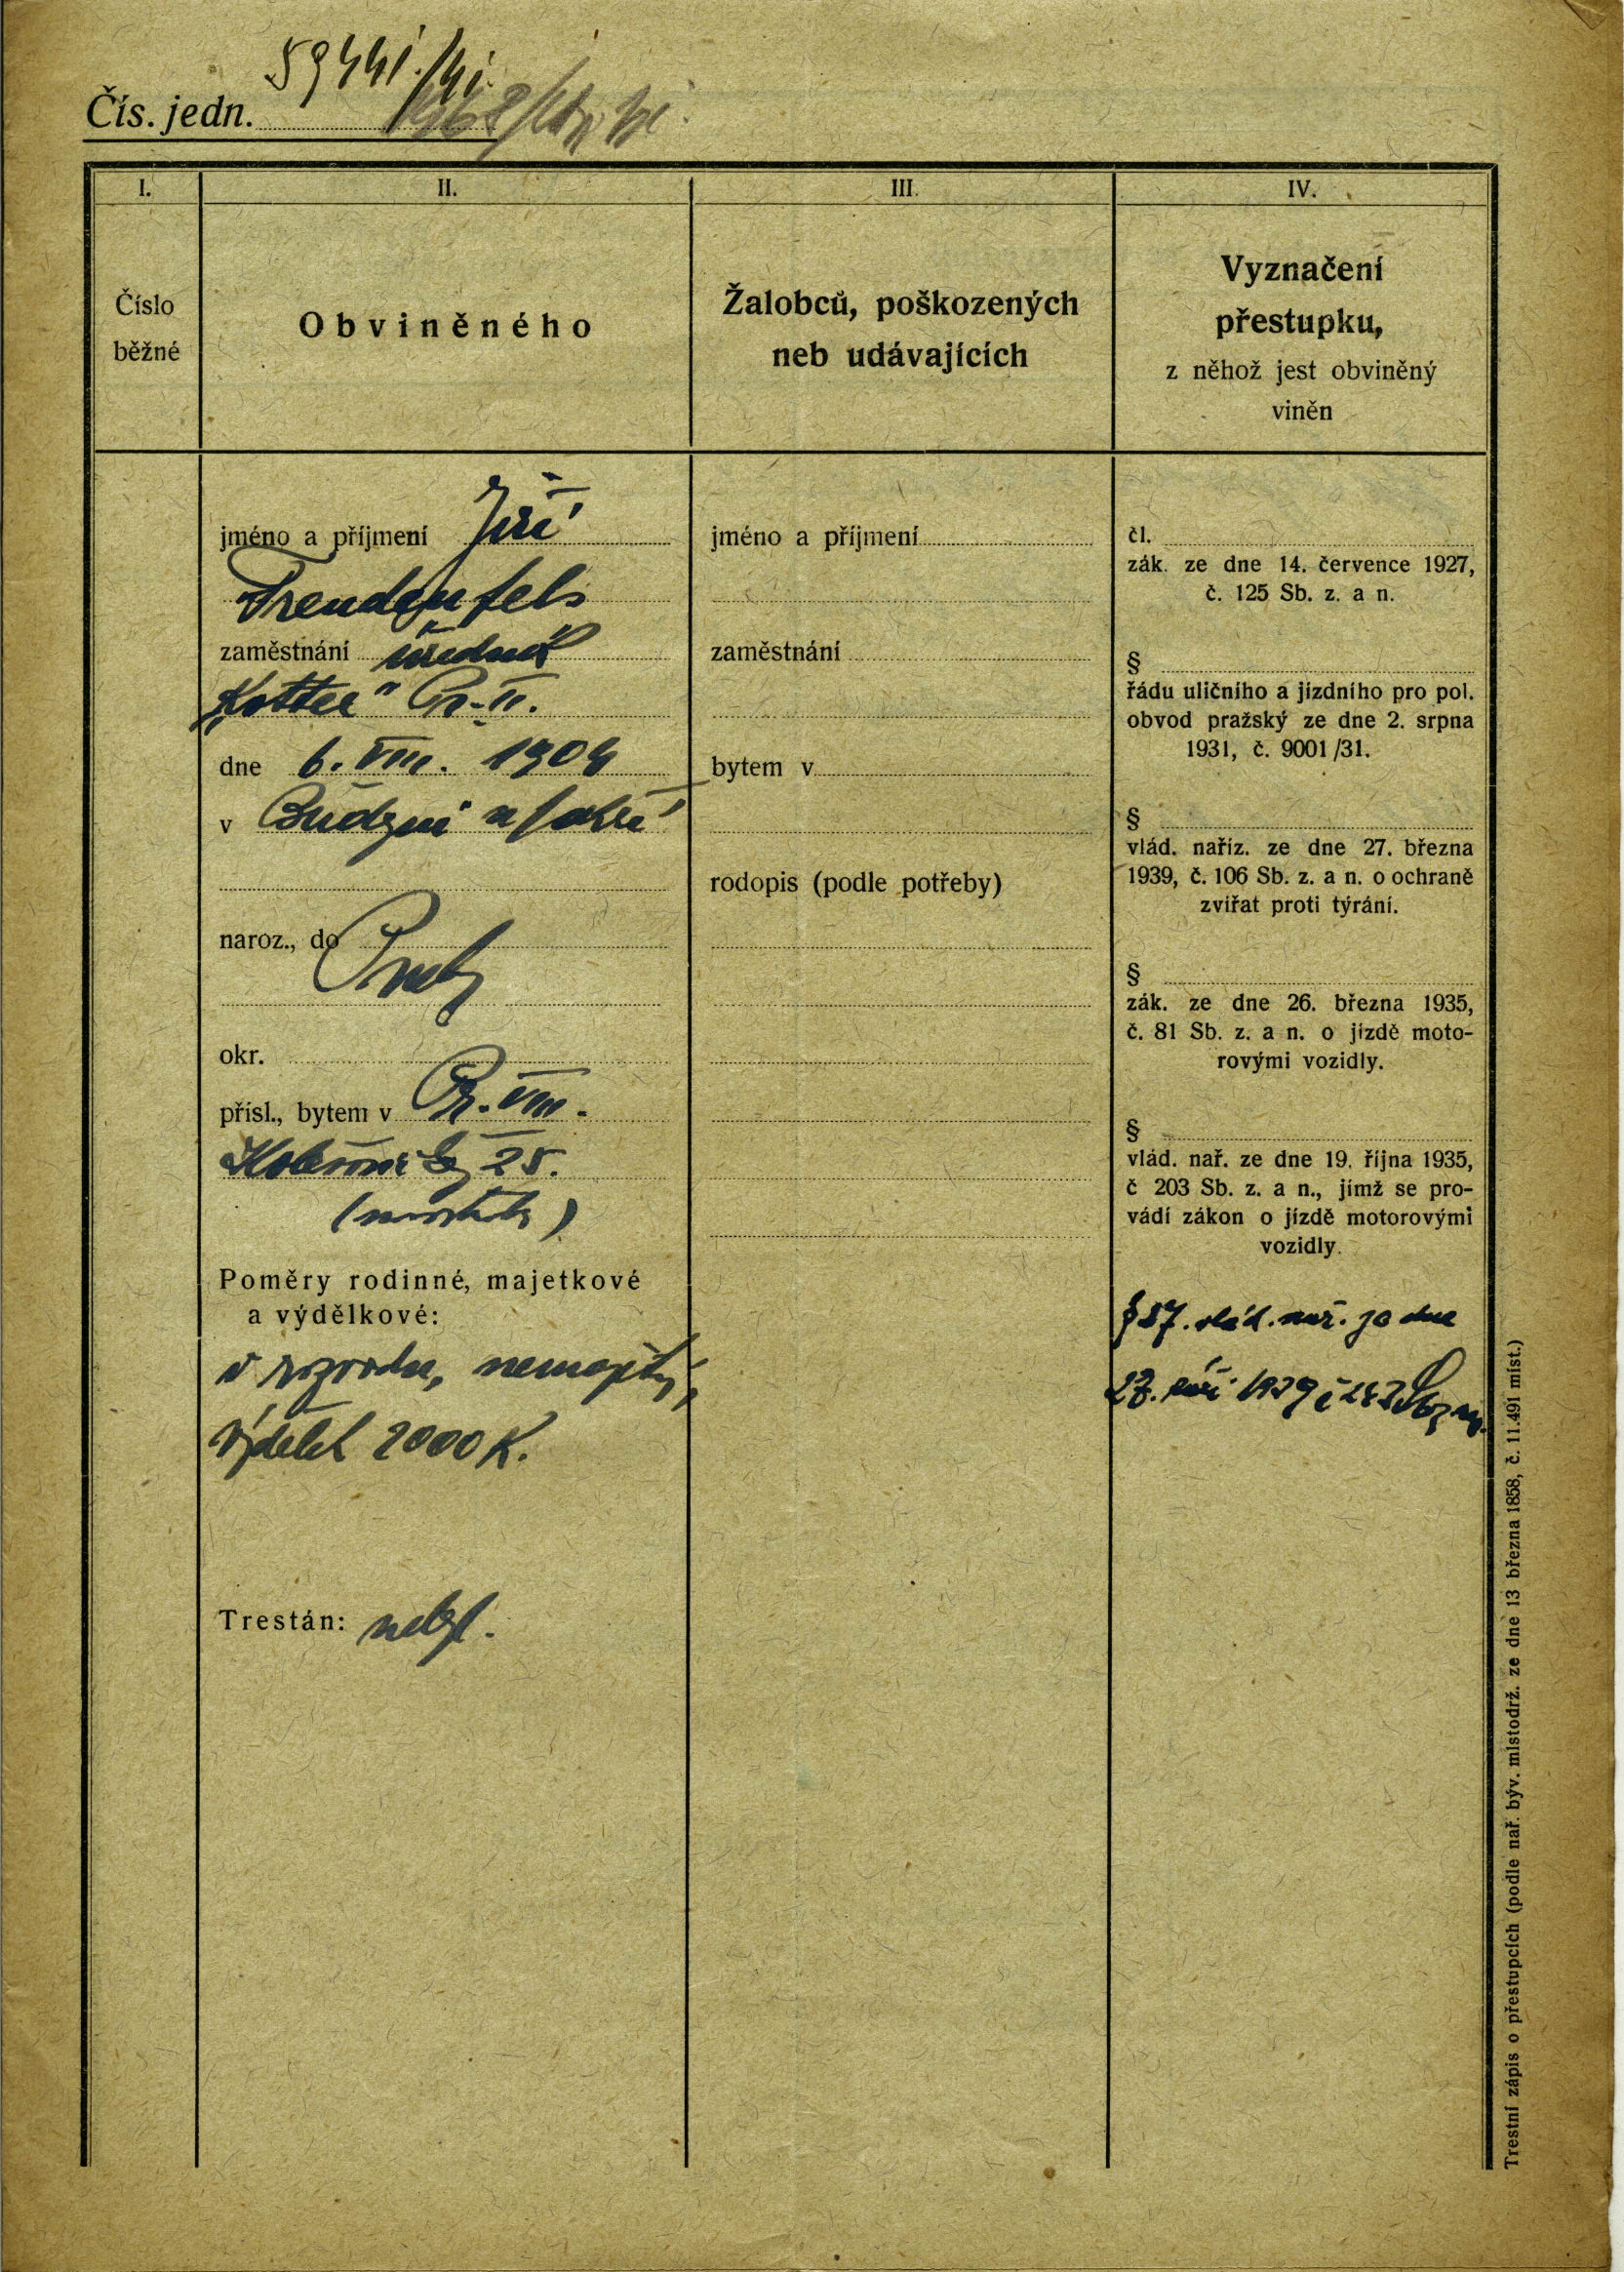 Čís. jedn. 59441/41
I.
II.
III.
IV.
Číslo
běžné
Obviněného
Žalobců, poškozených
neb udávajících
Vyznačení
přestupku,
z něhož jest obviněný
viněn
jméno a příjmení Jiří
Freudenfels
zaměstnání úředník
Pr. II.
dne 6. VIII. 1904
v Budyni n/Ohří
naroz., do
Prahy
okr.
přísl., bytem v Pr. VIII.
25.
Poměry rodinné, majetkové
a výdělkové:
v rozvodu, nemajetný,
výdělek 2000 K.
Trestán: nebyl.
jméno a příjmení
zaměstnání
bytem v
rodopis (podle potřeby)
čl.
zák. ze dne 14. července 1927,
č. 125 Sb. z. a n.
§
řádu uličního a jízdního pro pol.
obvod pražský ze dne 2. srpna
1931, č. 9001/31.
§
vlád. naříz. ze dne 27. března
1939, č. 106 Sb. z. a n. o ochraně
zvířat proti týrání.
§
zák. ze dne 26. března 1935,
č. 81 Sb. z. a n. o jízdě moto-
rovými vozidly.
§
vlád. nař. ze dne 19. října 1935,
č 203 Sb. z. a n., jímž se pro-
vádí zákon o jízdě motorovými
vozidly.
vlád. nař. ze dne
září 1939 č
Trestní zápis o přestupcích (podle nař. býv. místodrž. ze dne 13 března 1858, č. 11.491 míst.)